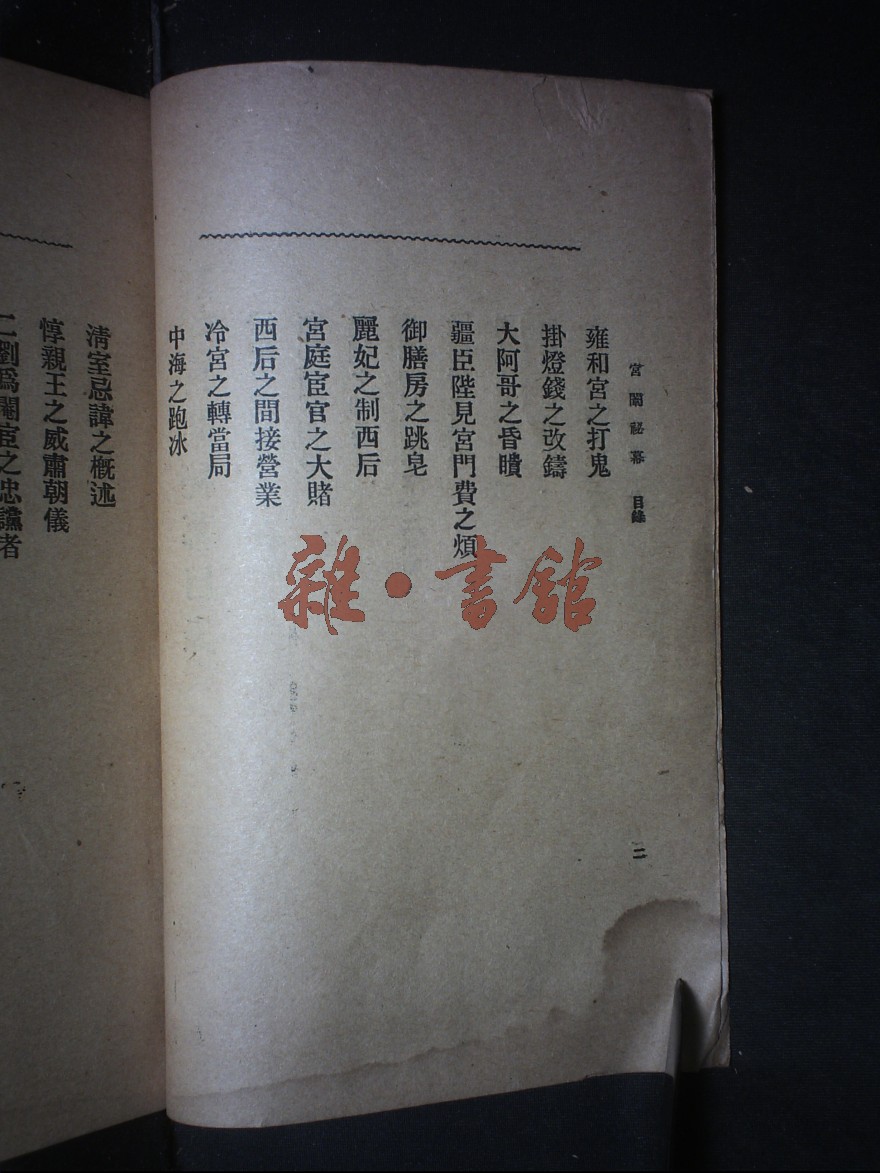 宮闈祕幕 目錄
雍和宮之打鬼
掛燈錢之改鑄
大阿哥之昏瞶
疆臣陛見宮門費之煩
御膳房之跳皂
麗妃之制西后
宮庭宦官之大賭
西后之間接營業
冷宮之轉當局
中海之跑冰
二
清室忌諱之概述
惇親王之威肅朝儀
二劉爲閹宦之忠讜者
雜·書館